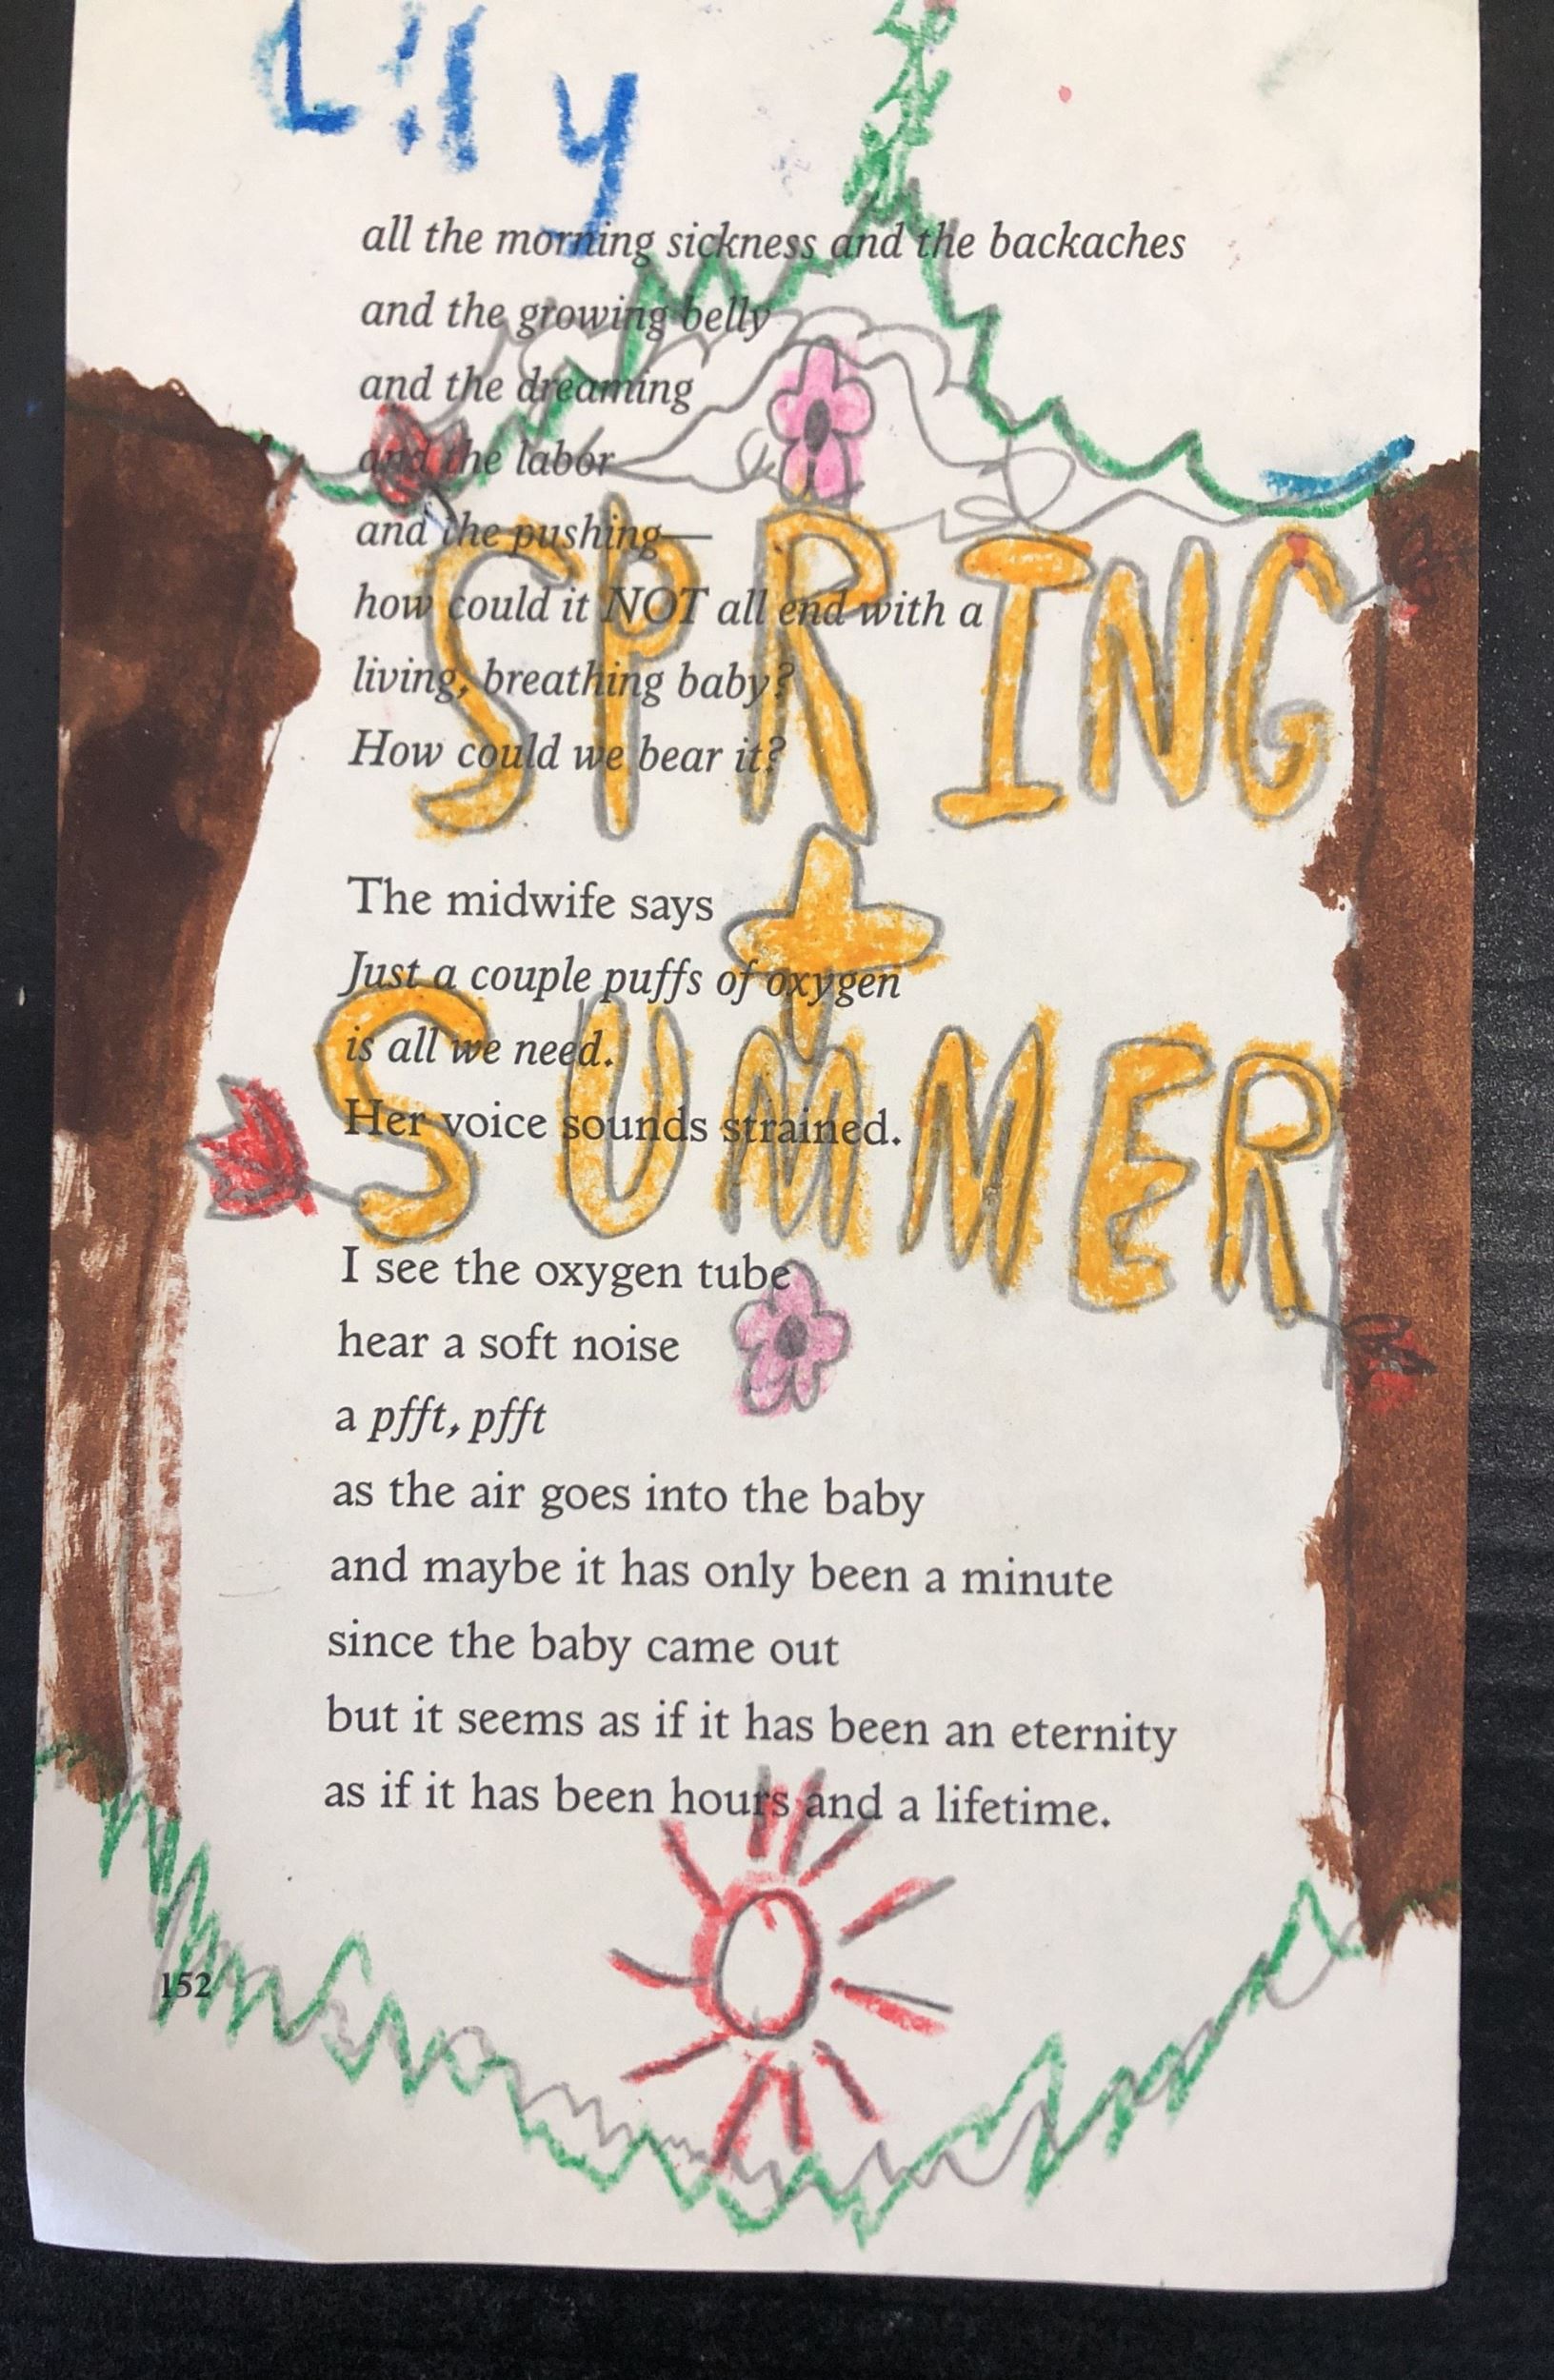 Lily
all the morning sickness and the backaches
and the growing belly
and the dreaming
and the labor
and the pushing—
how could it NOT all end with a
living, breathing baby?
How could we bear it?
SPRING
The midwife says
+
Just a couple puffs of oxygen
is all we need.
SUMMER
Her voice sounds strained.
I see the oxygen tube
hear a soft noise
a pfft, pfft
as the air goes into the baby
and maybe it has only been a minute
since the baby came out
but it seems as if it has been an eternity
as if it has been hours and a lifetime.
152